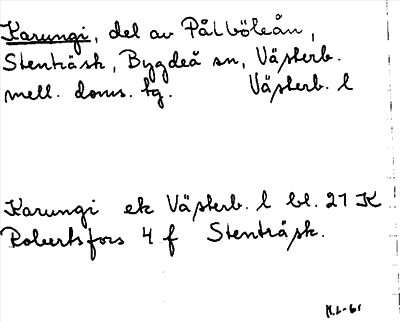 Karungi, del av Pålböleån,
Stenträsk, Bygdeå sn, Västerb.
mell. doms. tg. Västerb. l
Karungi ek Västerb. l bl. 21 K
Robertsfors 4 f Stenträsk.